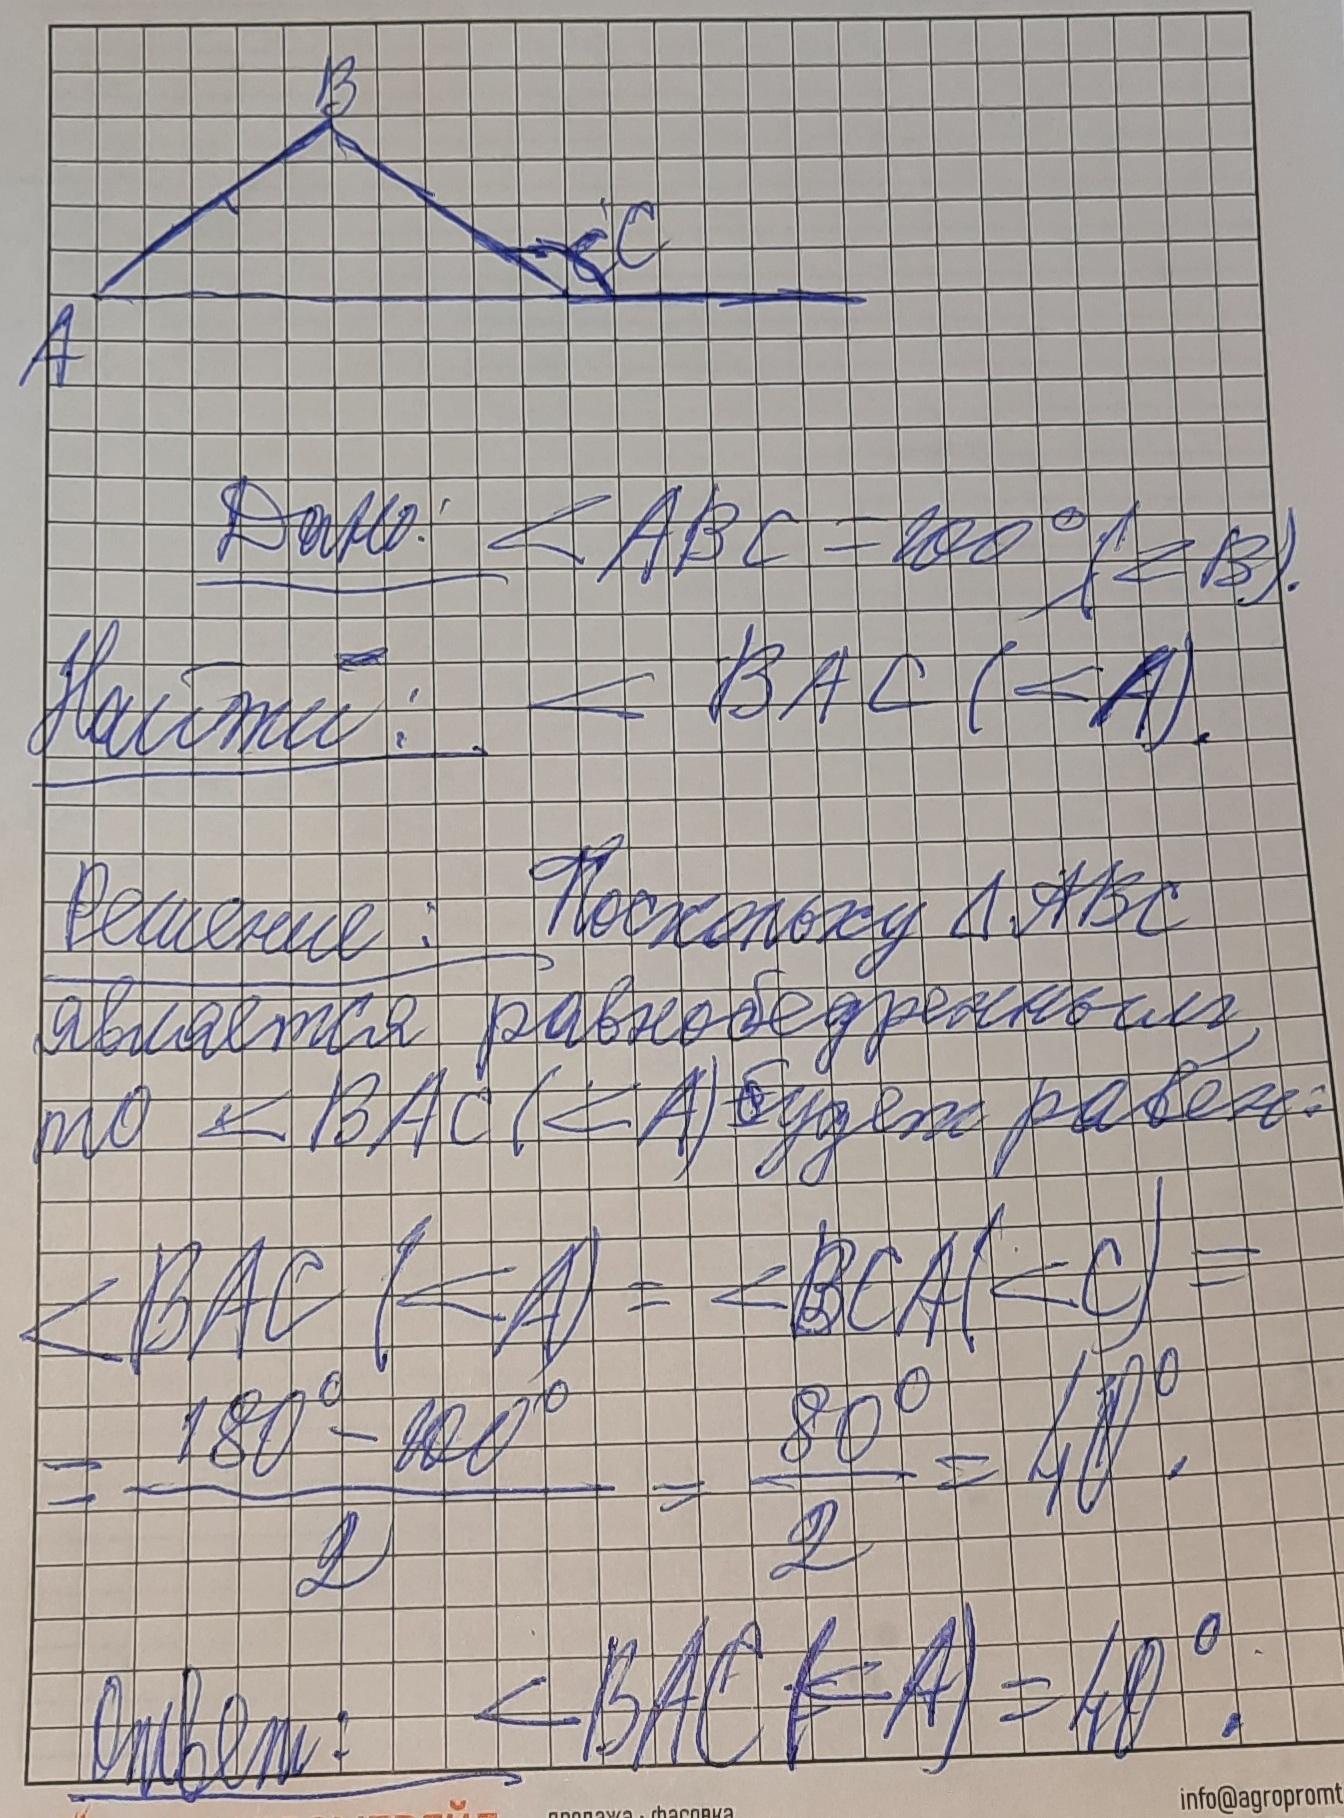 B
C
A
Дано: <ABC = 100° (∠B).
Найти: <BAC (<A).
Решение: Поскольку Δ ABC
является равнобедренным,
то <BAC (<A) будет равен:
<BAC (<A) = <BCA (<C) =
= 180° - 100° / 2 = 80° / 2 = 40°.
Ответ: <BAC (<A) = 40°.
продажа · фасовка
info@agropromt